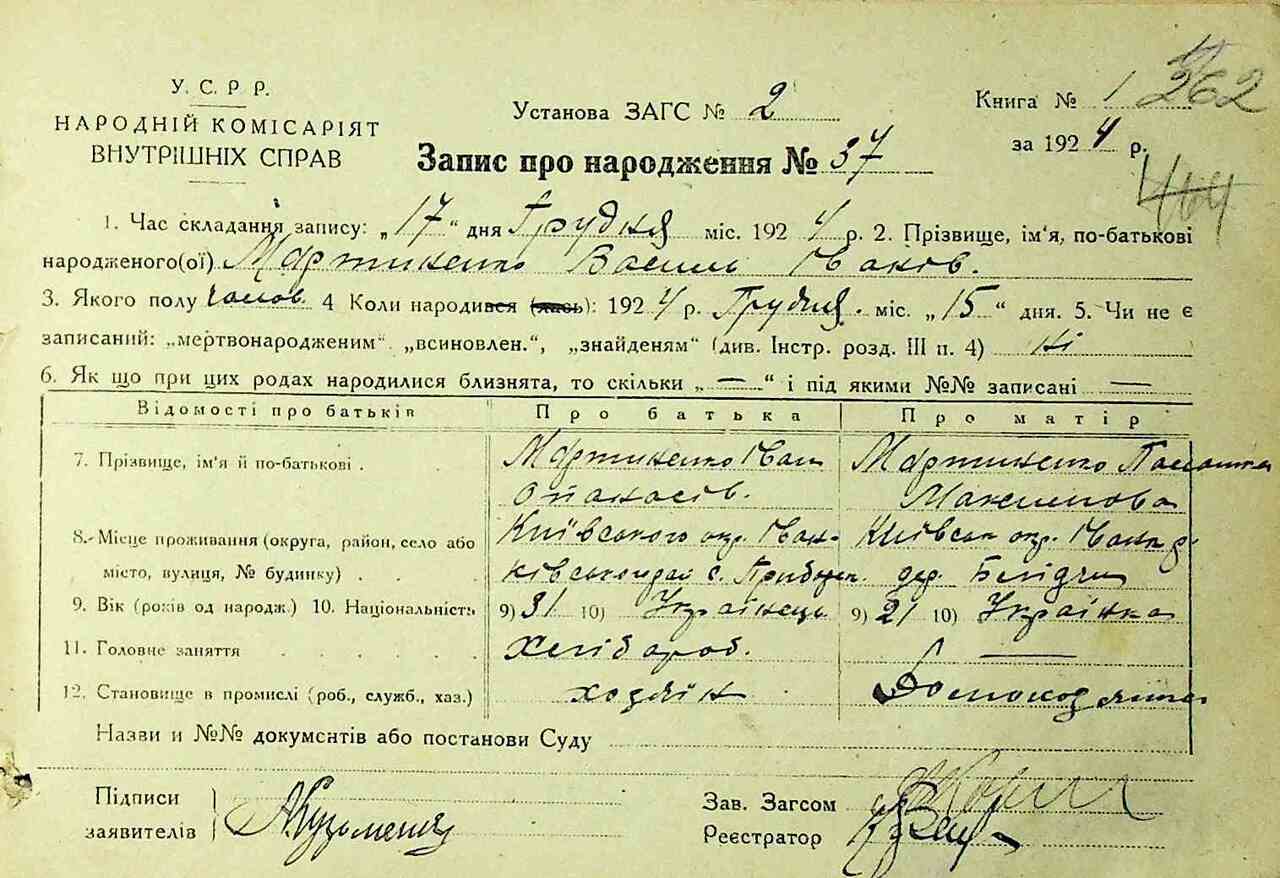 У. С. Р. Р.
НАРОДНІЙ КОМІСАРІЯТ
ВНУТРІШНІХ СПРАВ
Установа ЗАГС № 2
Книга № 1 362
за 1924 р.
Запис про народження № 37
464
1. Час складання запису: „17“ дня Грудня міс. 1924 р. 2. Прізвище, ім'я, по-батькові
народженого(ої) Мартиненко Василь Іванов.
3. Якого полу чолов. 4 Коли народився (лась): 1924 р. Грудня. міс. „15“ дня. 5. Чи не є
записаний: „мертвонародженим“. „всиновлен.“, „знайденям“ (див. Інстр. розд. III п. 4) ні
6. Як що при цих родах народилися близнята, то скільки „—“ і під якими №№ записані —
Відомості про батьків Про батька Про матір
7. Прізвище, ім'я й по-батькові . Мартиненко Іван Мартиненко
Опанасів. Максимова
8.- Місце проживання (округа, район, село або Київського окр. Іван- Київськ окр. Іванк
місто, вулиця, № будинку) . . . . ківський рай с. дер.
9. Вік (років од народж.) 10. Національність 9) 31 10) Українець 9) 21 10) Українка
11. Головне заняття . . . . . Хлібороб. —
12. Становище в промислі (роб., служб., хаз.) хозяїн
Назви и №№ документів або постанови Суду
Підписи
заявителів
Зав. Загсом
Реєстратор